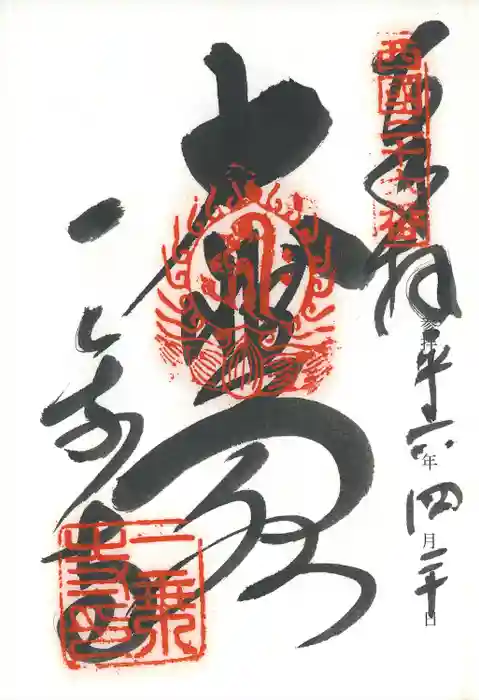 奉拝
西国二十六番
参拝 平六年四月二十日
大悲殿
一乗寺
一乗寺印